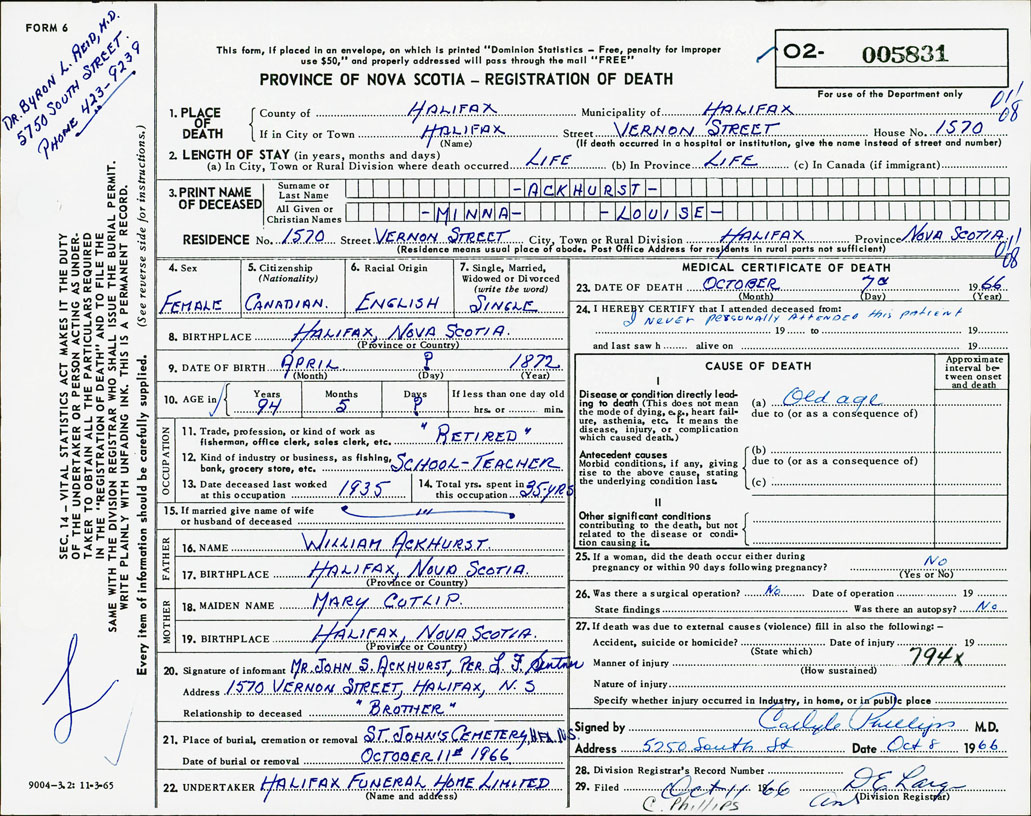 FORM 6
DR. BYRON L. REID, M.D.
5750 SOUTH STREET.
PHONE 423-9239
This form, if placed in an envelope, on which is printed "Dominion Statistics – Free, penalty for improper
use $50," and properly addressed will pass through the mail "FREE"
PROVINCE OF NOVA SCOTIA – REGISTRATION OF DEATH
O2- 005831
For use of the Department only
011
08
1. PLACE OF DEATH
County of HALIFAX Municipality of HALIFAX
If in City or Town HALIFAX Street VERNON STREET House No. 1570
(Name) (If death occurred in a hospital or institution, give the name instead of street and number)
2. LENGTH OF STAY (in years, months and days)
(a) In City, Town or Rural Division where death occurred LIFE (b) In Province LIFE (c) In Canada (if immigrant)
3. PRINT NAME OF DECEASED
Surname or Last Name -ACKHURST-
All Given or Christian Names -MINNA- -LOUISE-
RESIDENCE No. 1570 Street VERNON STREET City, Town or Rural Division HALIFAX Province NOVA SCOTIA
(Residence means usual place of abode. Post Office Address for residents in rural parts not sufficient)
011
08
4. Sex
FEMALE
5. Citizenship
(Nationality)
CANADIAN.
6. Racial Origin
ENGLISH
7. Single, Married,
Widowed or Divorced
(write the word)
SINGLE
8. BIRTHPLACE HALIFAX, NOVA SCOTIA.
(Province or Country)
9. DATE OF BIRTH APRIL ? 1872
(Month) (Day) (Year)
10. AGE in Years Months Days If less than one day old
94 5 ? hrs. or min.
OCCUPATION
11. Trade, profession, or kind of work as
fisherman, office clerk, sales clerk, etc. "RETIRED"
12. Kind of industry or business, as fishing,
bank, grocery store, etc. SCHOOL-TEACHER
13. Date deceased last worked
at this occupation 1935
14. Total yrs. spent in
this occupation 35-YRS
15. If married give name of wife
or husband of deceased "'
FATHER
16. NAME WILLIAM ACKHURST.
17. BIRTHPLACE HALIFAX, NOVA SCOTIA.
(Province or Country)
MOTHER
18. MAIDEN NAME MARY CUTLIP.
19. BIRTHPLACE HALIFAX, NOVA SCOTIA.
(Province or Country)
20. Signature of informant MR. JOHN S. ACKHURST, PER. L. F.
Address 1570 VERNON STREET, HALIFAX, N.S
Relationship to deceased "BROTHER"
21. Place of burial, cremation or removal ST. JOHN'S CEMETERY, HFX. N.S.
Date of burial or removal OCTOBER 11th 1966
22. UNDERTAKER HALIFAX FUNERAL HOME LIMITED
(Name and address)
MEDICAL CERTIFICATE OF DEATH
23. DATE OF DEATH OCTOBER 7th 1966
(Month) (Day) (Year)
24. I HEREBY CERTIFY that I attended deceased from:
I never personally attended this patient
19 to 19
and last saw h alive on 19
CAUSE OF DEATH
Approximate
interval be-
tween onset
and death
I
Disease or condition directly lead-
ing to death (This does not mean
the mode of dying, e.g., heart fail-
ure, asthenia, etc. It means the
disease, injury, or complication
which caused death.)
(a) Old age
due to (or as a consequence of)
Antecedent causes
Morbid conditions, if any, giving
rise to the above cause, stating
the underlying condition last.
(b)
due to (or as a consequence of)
(c)
II
Other significant conditions
contributing to the death, but not
related to the disease or condi-
tion causing it.
25. If a woman, did the death occur either during
pregnancy or within 90 days following pregnancy? No
(Yes or No)
26. Was there a surgical operation? No. Date of operation 19
State findings Was there an autopsy? No
27. If death was due to external causes (violence) fill in also the following: –
Accident, suicide or homicide? Date of injury 19
(State which)
Manner of injury 794x
(How sustained)
Nature of injury
Specify whether injury occurred in industry, in home, or in public place
Signed by Carlyle Phillips M.D.
Address 5250 South St Date Oct 8 1966
28. Division Registrar's Record Number
29. Filed Oct 11 1966
(Division Registrar)
C. Phillips
SEC. 14 – VITAL STATISTICS ACT MAKES IT THE DUTY
OF THE UNDERTAKER OR PERSON ACTING AS UNDER-
TAKER TO OBTAIN ALL THE PARTICULARS REQUIRED
IN THE "REGISTRATION OF DEATH" AND TO FILE THE
SAME WITH THE DIVISION REGISTRAR WHO SHALL ISSUE THE BURIAL PERMIT.
WRITE PLAINLY WITH UNFADING INK. THIS IS A PERMANENT RECORD.
Every item of information should be carefully supplied. (See reverse side for instructions.)
9004-3.2: 11-3-65